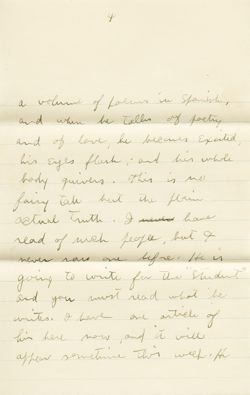 4
a volume of poems in Spanish,
and when he talks of poetry
and of love, he becomes excited,
his eyes flash, and his whole
body quivers. This is no
fairy tale but the plain
actual truth. I never have
read of such people, but I
never saw one before. He is
going to write for the "Student"
and you must read what he
writes. I have one article of
his here now, and it will
appear sometime this week. He